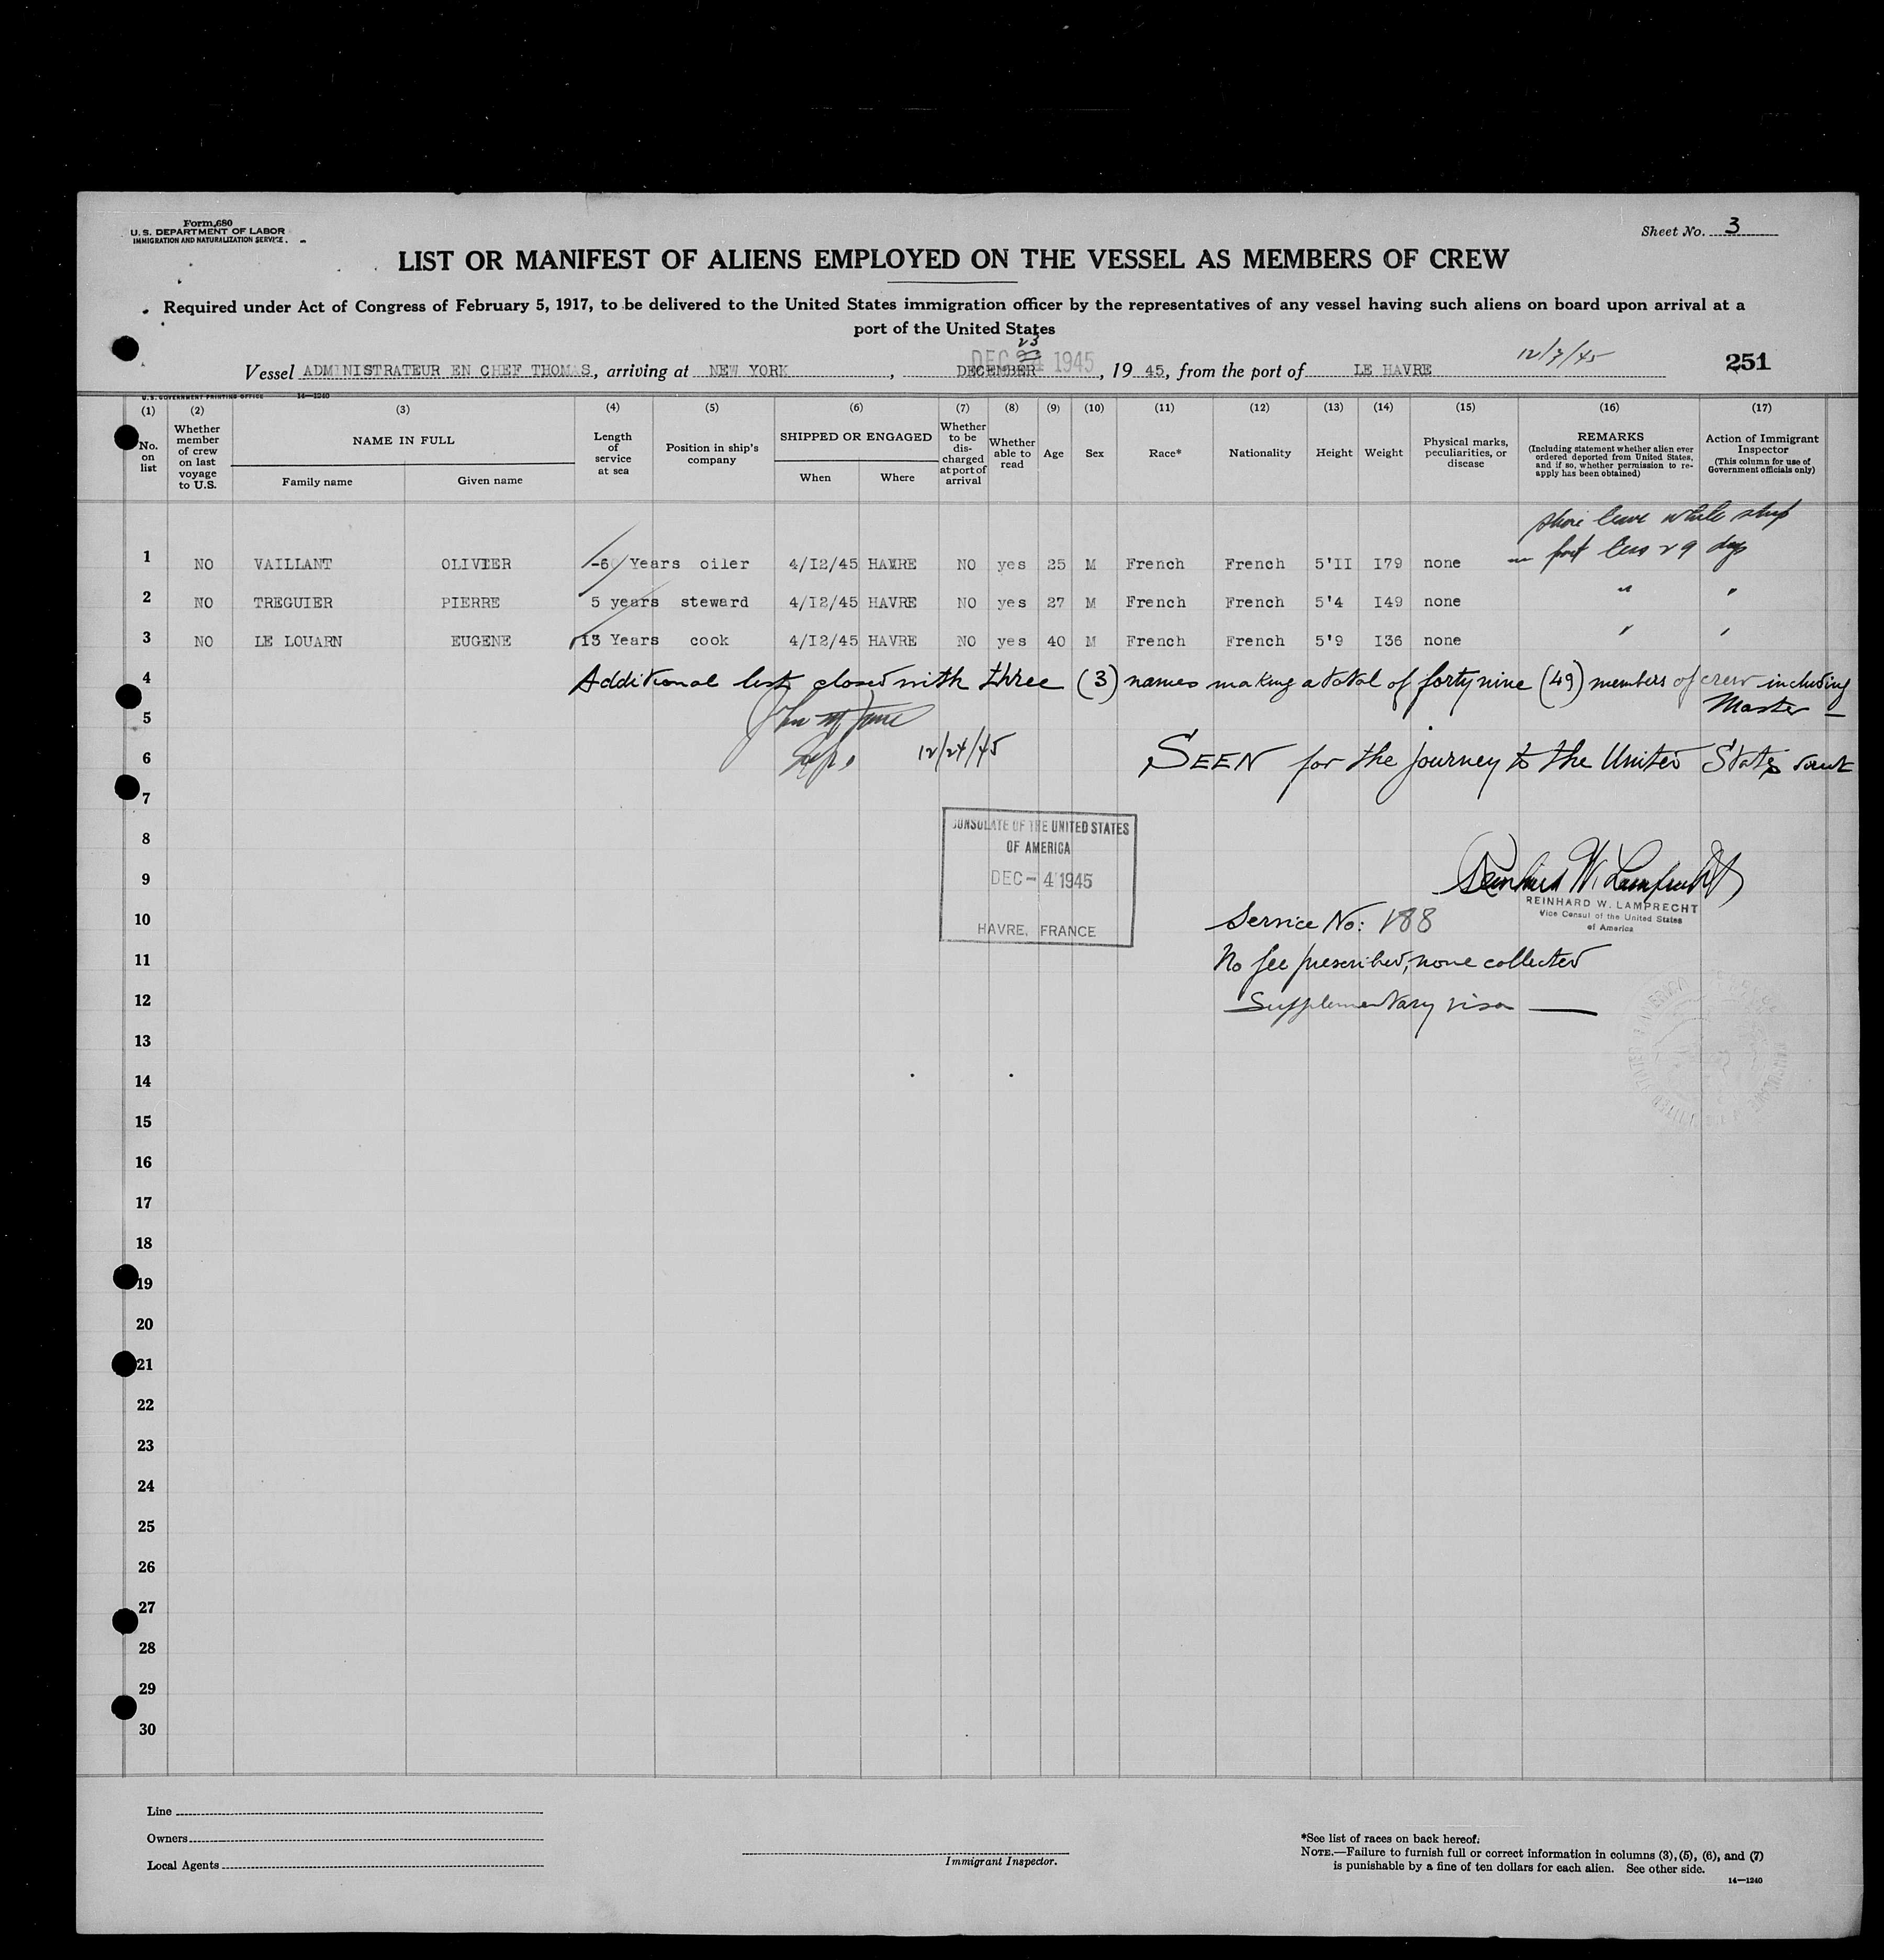 Form 680
U. S. DEPARTMENT OF LABOR
IMMIGRATION AND NATURALIZATION SERVICE.
Sheet No. 3
LIST OR MANIFEST OF ALIENS EMPLOYED ON THE VESSEL AS MEMBERS OF CREW
Required under Act of Congress of February 5, 1917, to be delivered to the United States immigration officer by the representatives of any vessel having such aliens on board upon arrival at a
port of the United States
23
DEC 24 1945
12/7/45
Vessel ADMINISTRATEUR EN CHEF THOMAS, arriving at NEW YORK, DECEMBER, 19 45, from the port of LE HAVRE
251
U. S. GOVERNMENT PRINTING OFFICE 14—1240
(1) (2) (3) (4) (5) (6) (7) (8) (9) (10) (11) (12) (13) (14) (15) (16) (17)
No. on list
Whether member of crew on last voyage to U.S.
NAME IN FULL
Family name
Given name
Length of service at sea
Position in ship's company
SHIPPED OR ENGAGED
When
Where
Whether to be discharged at port of arrival
Whether able to read
Age
Sex
Race*
Nationality
Height
Weight
Physical marks, peculiarities, or disease
REMARKS
(Including statement whether alien ever ordered deported from United States, and if so, whether permission to re-apply has been obtained)
Action of Immigrant Inspector
(This column for use of Government officials only)
shore leave while ship
in port less 29 days
1 NO VAILLANT OLIVIER 6 Years oiler 4/I2/45 HAVRE NO yes 25 M French French 5'II I79 none
2 NO TREGUIER PIERRE 5 years steward 4/I2/45 HAVRE NO yes 27 M French French 5'4 I49 none " "
3 NO LE LOUARN EUGENE 13 Years cook 4/I2/45 HAVRE NO yes 40 M French French 5'9 I36 none " "
4 Additional list closed with three (3) names making a total of forty nine (49) members of crew including
Master —
5
6 12/24/45 SEEN for the journey to the United States
7
CONSULATE OF THE UNITED STATES
OF AMERICA
DEC - 4 1945
HAVRE, FRANCE
8
9
Reinhard W. Lamprecht
REINHARD W. LAMPRECHT
Vice Consul of the United States
of America
10 Service No: 188
11 No fee prescribed, none collected
12 Supplementary visa —
13
14
15
16
17
18
19
20
21
22
23
24
25
26
27
28
29
30
Line
Owners
Local Agents
Immigrant Inspector.
*See list of races on back hereof.
NOTE.—Failure to furnish full or correct information in columns (3), (5), (6), and (7)
is punishable by a fine of ten dollars for each alien. See other side.
14—1240